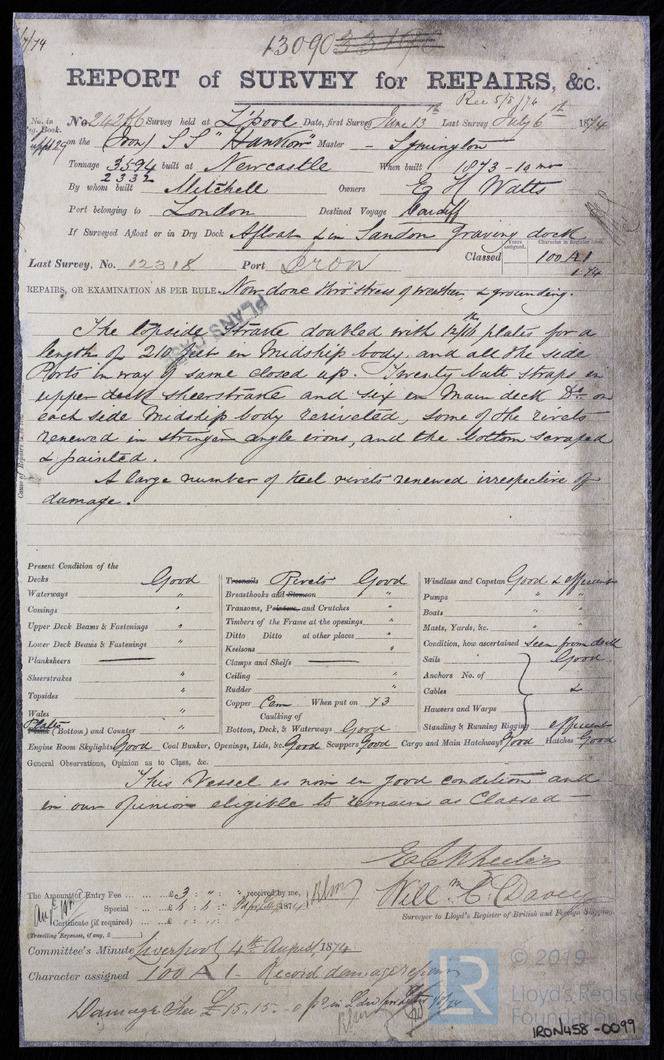 13090
REPORT of SURVEY for REPAIRS, &c.
Rec 5/8/74
No. in Reg. Book.
No 24286 Survey held at L'pool Date, first Survey June 13th Last Survey July 6th 1874
on the (Iron) S S "Hankow" Master - Symington
Tonnage 3594 built at Newcastle When built 1873 - 10 mo
2332
By whom built Mitchell Owners E H Watts
Port belonging to London Destined Voyage Cardiff
If Surveyed Afloat or in Dry Dock Afloat & in Sandon graving dock
Years assigned. Character in Register Book.
Last Survey, No. 12318 Port Iron Classed 100 A1
1.74
REPAIRS, OR EXAMINATION AS PER RULE. Now done thro' stress of weather & grounding.
PLANS
The topside Strake doubled with 12/16th plates for a
length of 210 feet in Midship body, and all the side
Ports in way of same closed up. Twenty butt straps in
upper deck sheerstrake and six in Main deck Do. on
each side Midship body reriveted, some of the rivets
renewed in stringer angle irons, and the bottom scraped
& painted.
A large number of Keel rivets renewed irrespective of
damage.
Present Condition of the
Decks Good Treenails Rivets Good Windlass and Capstan Good & efficient
Waterways " Breasthooks and Stemson " Pumps " "
Comings " Transoms, Pointers, and Crutches " Boats " "
Upper Deck Beams & Fastenings " Timbers of the Frame at the openings " Masts, Yards, &c. " "
Lower Deck Beams & Fastenings " Ditto Ditto at other places " Condition, how ascertained seen from deck
Planksheers Keelsons " Sails Good
Sheerstrakes " Clamps and Shelfs Anchors No. of
Topsides " Ceiling " Cables &
Wales Rudder " Hawsers and Warps
Plates (Bottom) and Counter " Copper Cem When put on 73 Standing & Running Rigging efficient
Caulking of
Bottom, Deck, & Waterways Good
Engine Room Skylights Good Coal Bunker, Openings, Lids, &c. Good Scuppers Good Cargo and Main Hatchways Good Hatches Good
General Observations, Opinion as to Class, &c.
This Vessel is now in good condition and
in our opinion eligible to remain as Classed
E C Wheeler
The Amount of Entry Fee £3 : " : " received by me,
Will m C. Davey
Special £
1874
Surveyor to Lloyd's Register of British and Foreign Shipping.
Certificate (if required) £
(Travelling Expenses, if any, £
Committee's Minute Liverpool, 4th August, 1874
Character assigned 100 A 1 - Record damage repairs
Damage Fee £ 15.15.-
LR
© 2019
Lloyd's Register
Foundation
IRON458-0099